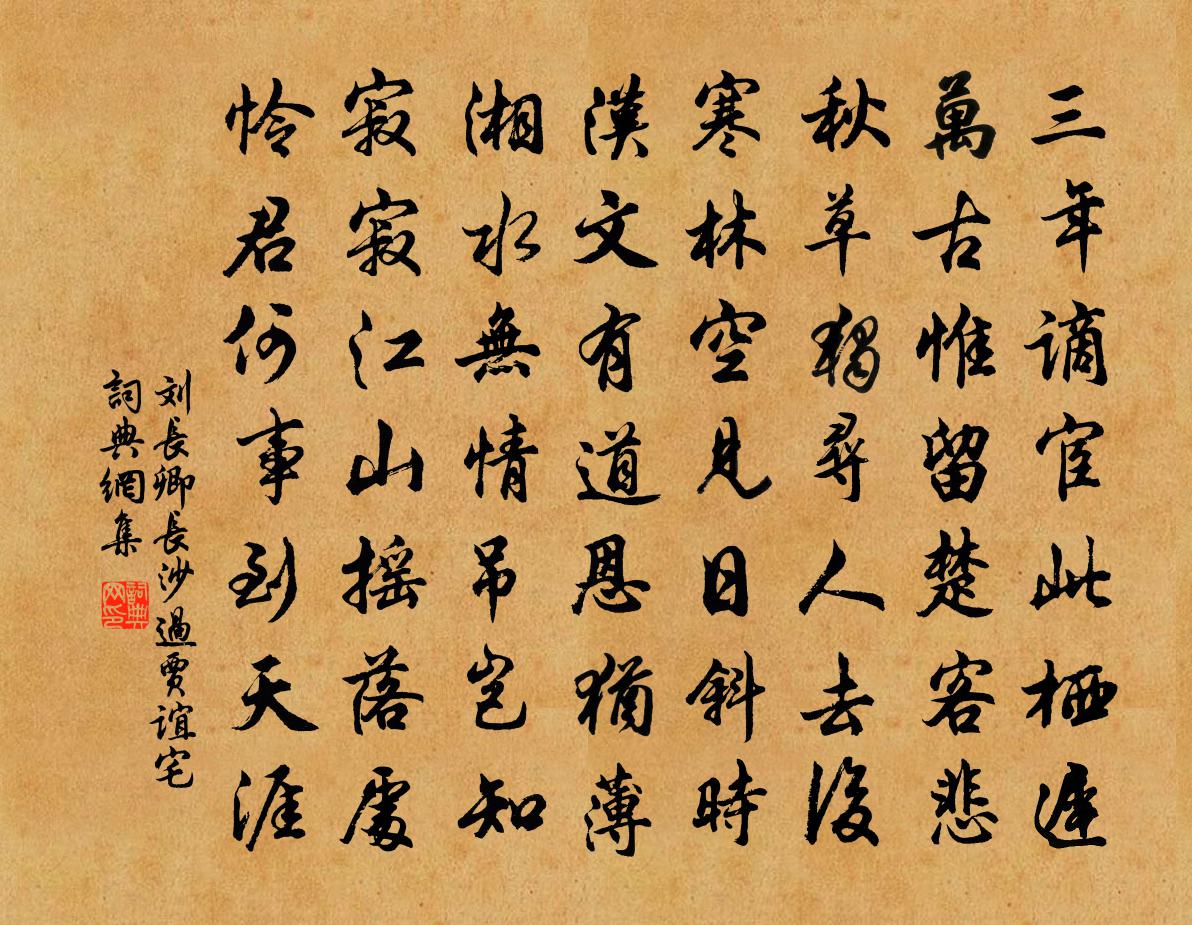 三年謫宦此栖遲
萬古惟留楚客悲
秋草獨尋人去後
寒林空見日斜時
漢文有道恩猶薄
湘水無情吊豈知
寂寂江山搖落處
怜君何事到天涯
刘長卿長沙過賈誼宅
詞典網集
詞典网印